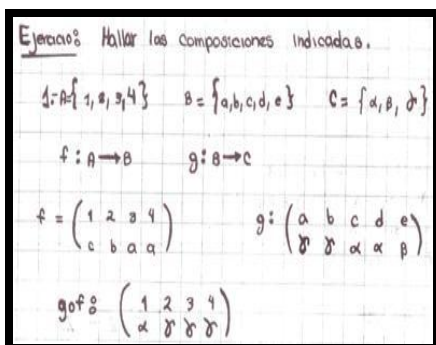 Ejercicio: Hallar las composiciones indicadas.
1.- A={1,2,3,4} B={a,b,c,d,e} C={α,β,γ}
f: A→B g: B→C
f = (1 2 3 4 g: (a b c d e
c b a a) γ γ α α β)
gof: (1 2 3 4
α γ γ γ)